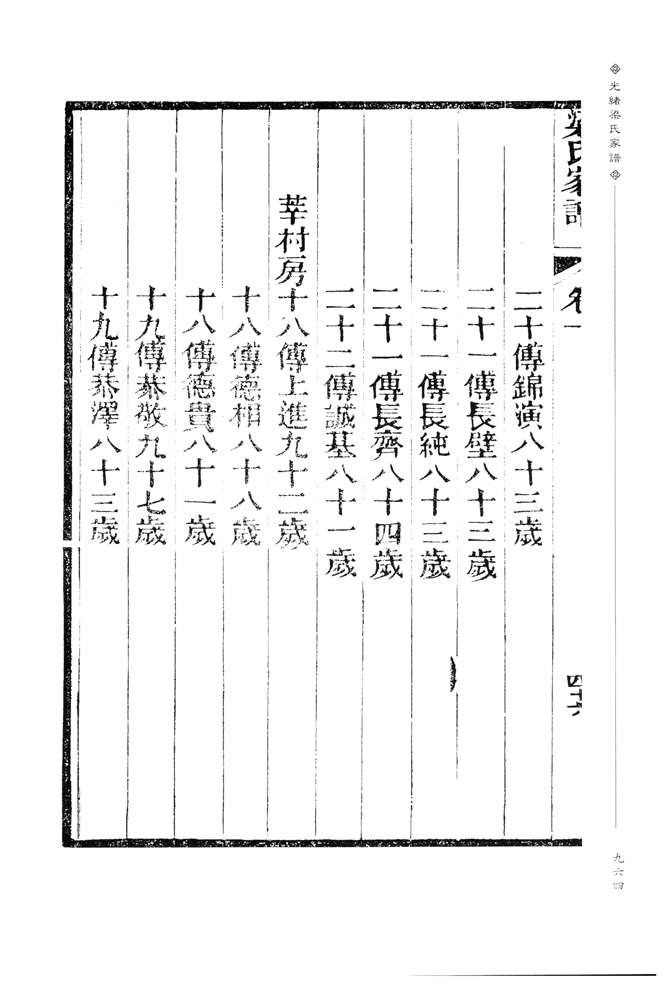 光緒梁氏家譜
梁氏家譜
卷一
四十六
二十傳錦演八十三歲
二十一傳長壁八十三歲
二十一傳長純八十三歲
二十一傳長齊八十四歲
二十二傳誠基八十一歲
莘村房十八傳上進九十二歲
十八傳德相八十八歲
十八傳德貴八十一歲
十九傳恭敬九十七歲
十九傳恭澤八十三歲
九六四